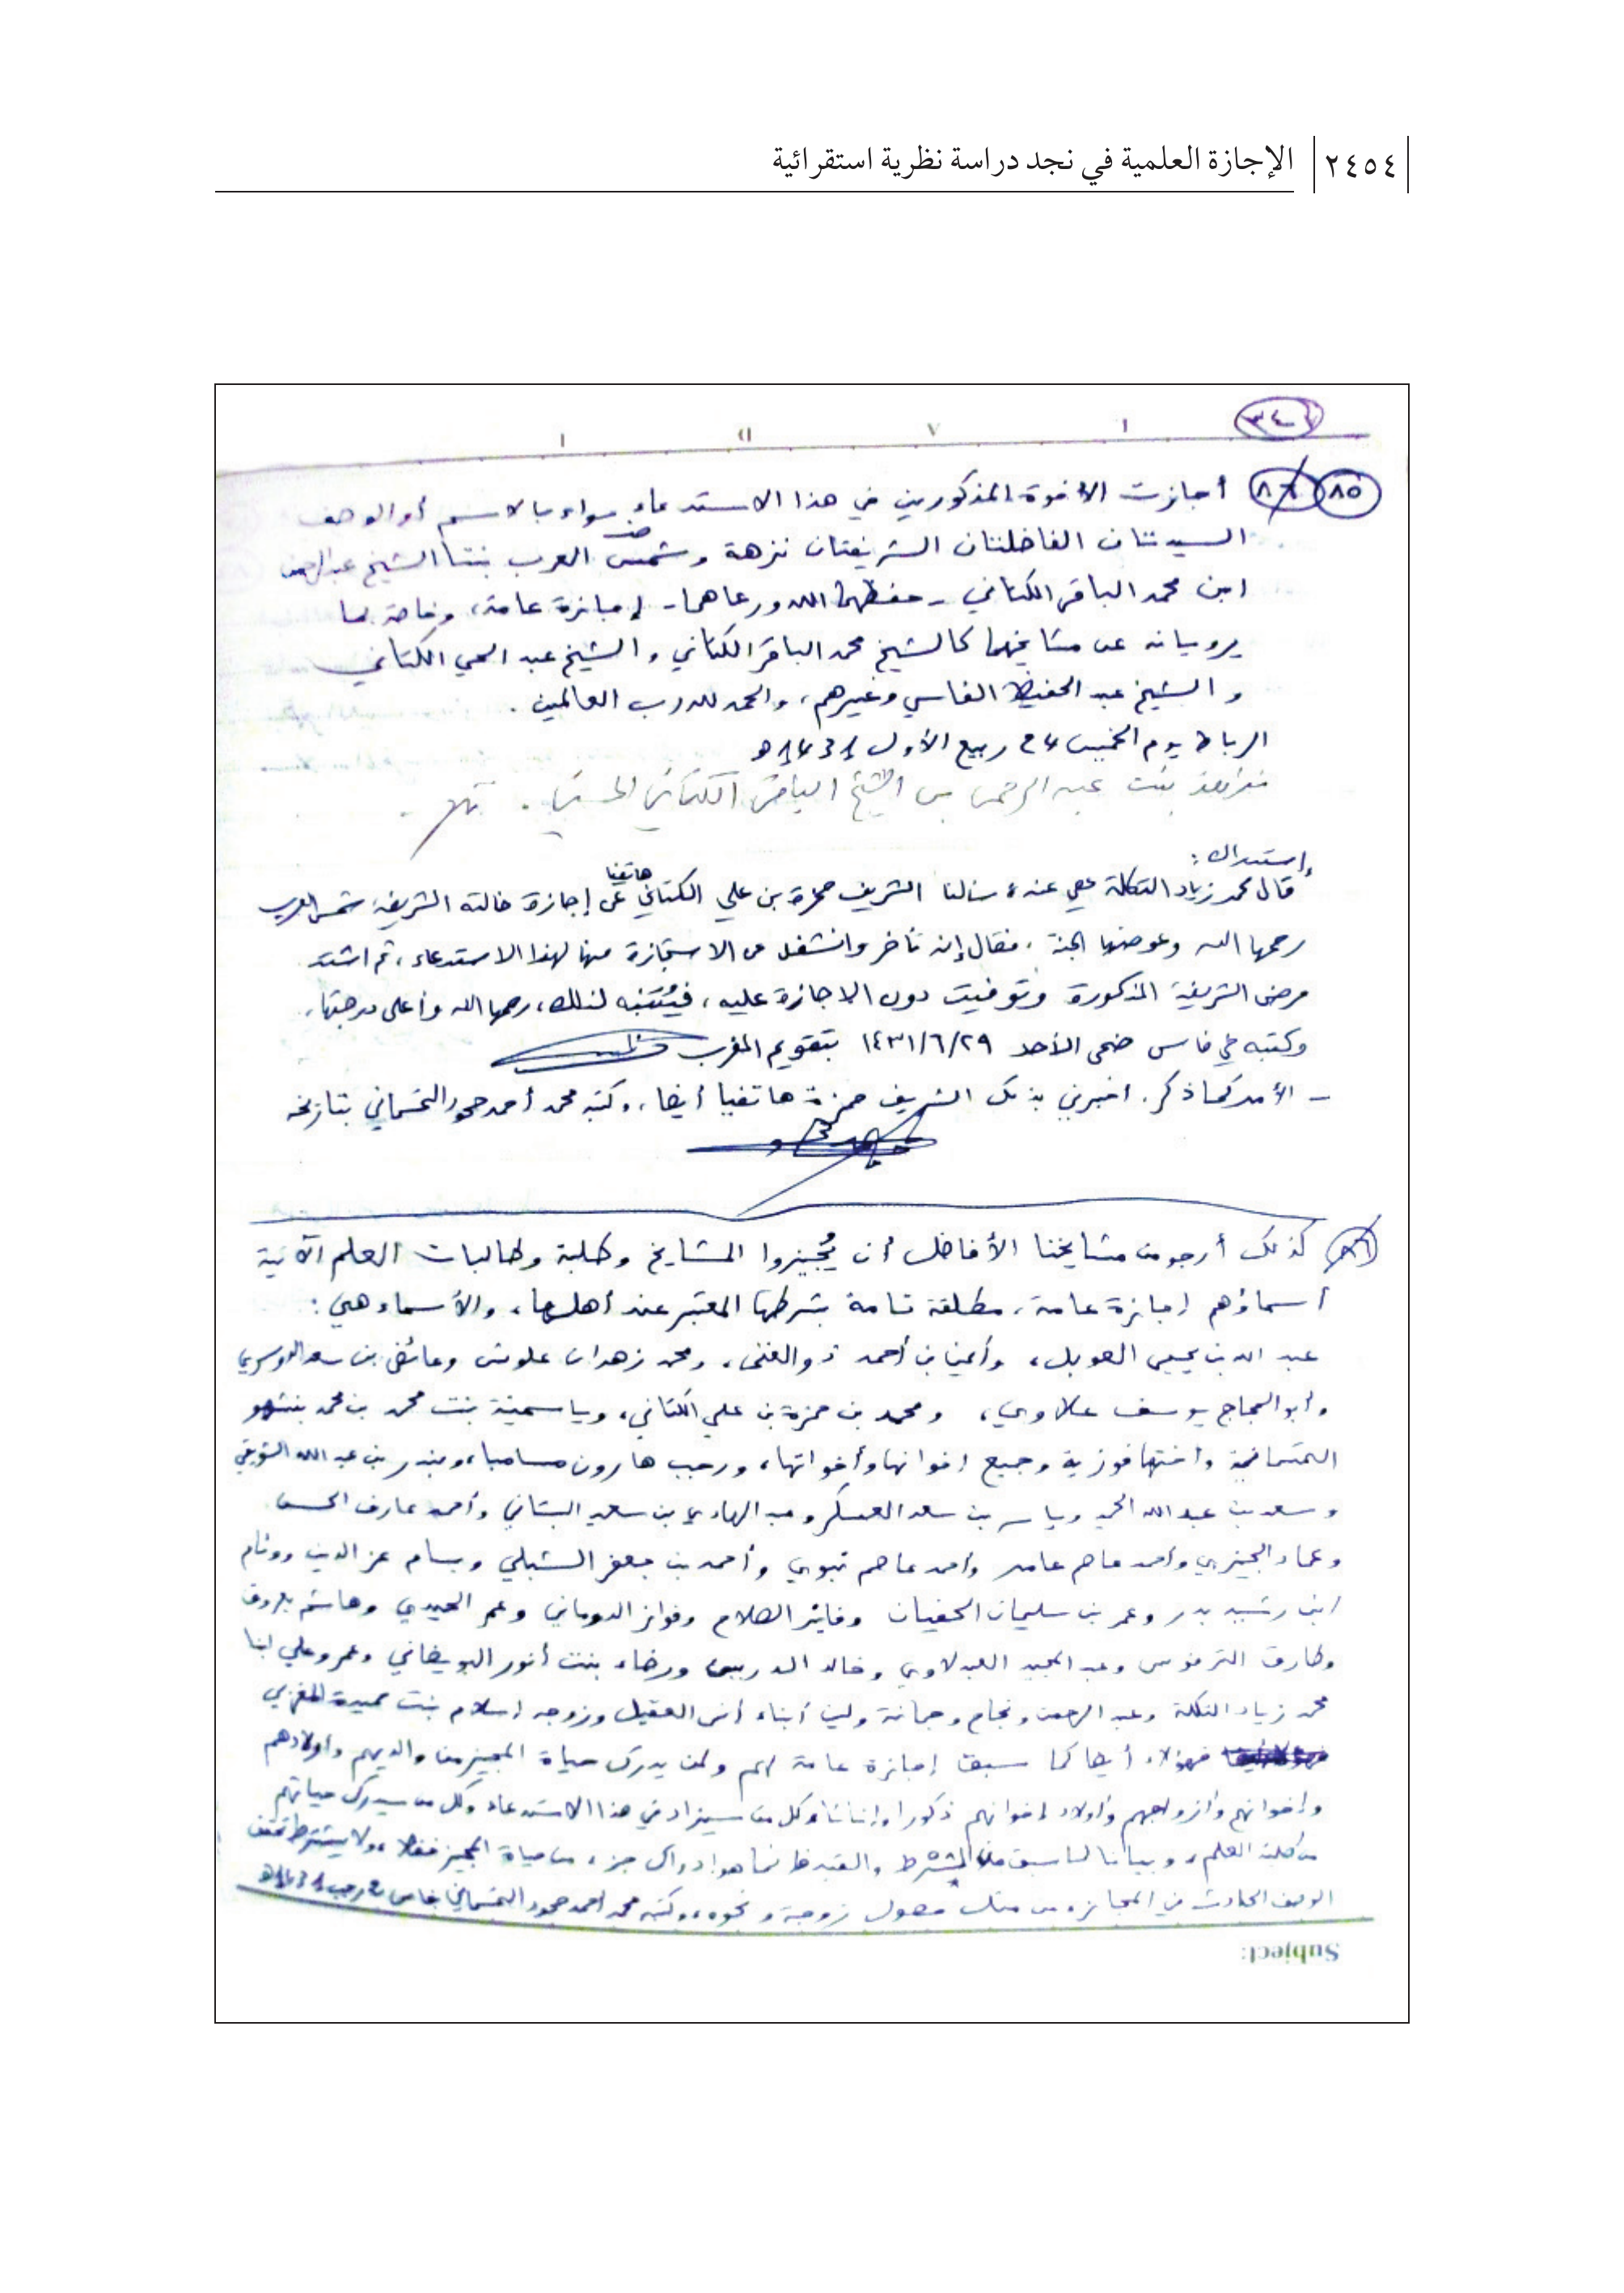 ٢٤٥٤ الإجازة العلمية في نجد دراسة نظرية استقرائية
٨٥ ٨٦ أجازت الأخوة المذكورين في هذا الاستدعاء سواء بالاسم أو الوصف
السيدتان الفاضلتان الشريفتان نزهة وشمس العرب بنتا الشيخ عبد الرحمن
ابن محمد الباقر الكتاني - حفظهما الله ورعاهما - إجازة عامة، وخاصة بما
يرويانه عن مشايخهما كالشيخ محمد الباقر الكتاني والشيخ عبد الحي الكتاني
والشيخ عبد الحفيظ الفاسي وغيرهم، والحمد لله رب العالمين.
الرباط يوم الخميس 24 ربيع الأول 1431 هـ
بنت عبد الرحمن بن الشيخ الباقر الكتاني الحسني.
إستدراك:
قال محمد زياد التكلة عفي عنه: سألنا الشريف حمزة بن علي الكتاني هاتفيا عن إجازة خالته الشريفة شمس العرب
رحمها الله وعوضها الجنة، فقال إنه تأخر وانشغل عن الاستجازة منها لهذا الاستدعاء، ثم اشتد
مرض الشريفة المذكورة وتوفيت دون الإجازة عليه، فيُتنبه لذلك، رحمها الله وأعلى درجتها،
وكتبه في فاس ضحى الأحد ١٤٣١/٦/٢٩ بتقويم المغرب
- الأمر كما ذكر. أخبرني بذلك الشريف حمزة هاتفيا أيضا، وكتبه محمد أحمد حجود التمسماني بتاريخه
٨٦ كذلك أرجو من مشايخنا الأفاضل أن يُجيزوا المشايخ وطلبة وطالبات العلم الآتية
أسماؤهم إجازة عامة، مطلقة تامة بشرطها المعتبر عند أهلها، والأسماء هي:
عبد الله بن يحيى العوبل، وأيمن بن أحمد ذو الغنى، ومحمد زهدان علوش وعائض بن سعد الدوسري
وأبو الحجاج يوسف علاوي، ومحمد بن حمزة بن علي الكتاني، وياسمينة بنت محمد بن محمد
التمسمانية وأختها فوزية وجميع إخوانها وأخواتها، ورجب هارون مسامبا، وبندر بن عبد الله الشويقي
وسعد بن عبد الله الحميد وياسر بن سعد العسكر وعبد الهادي بن سعيد البستاني وأحمد عارف
وعماد الجيزي وأحمد عاصم عامر وأحمد عاصم نبوي وأحمد بن جعفر الشبلي وبسام عز الدين ووئام
ابن رشيد بدر وعمر بن سليمان الحفيان وفايز الصلاح وفواز الدوماني وعمر الحيدي وهاشم
وطارق الترنوس وعبد المجيد العبدلاوي وخالد الدريس ورضاء بنت أنور البويضاني وعمر وعلي ابنا
محمد زياد التكلة وعبد الرحمن ونجاح وجمانة ولين أبناء أنس العقيل وزوجه إسلام بنت المغربي
فهؤلاء أيضا كما سبق إجازة عامة لهم ولمن يدرك حياة المجيز من والديهم وأولادهم
وإخوانهم وأزواجهم وأولاد إخوانهم ذكورا وإناثا وكل من سيزاد في هذا الاستدعاء وكل من سيدرك حياتهم
من طلبة العلم، وبيانا لما سبق من الشرط والقيد فإنما هو إدراك جزء من حياة المجيز فقط، ولا يشترط تحقق
الوصف الحادث في المجاز، من مثل حصول زوجة ونحوه، وكتبه محمد أحمد حجود التمسماني بفاس 2 رجب 1431 هـ
Subject: